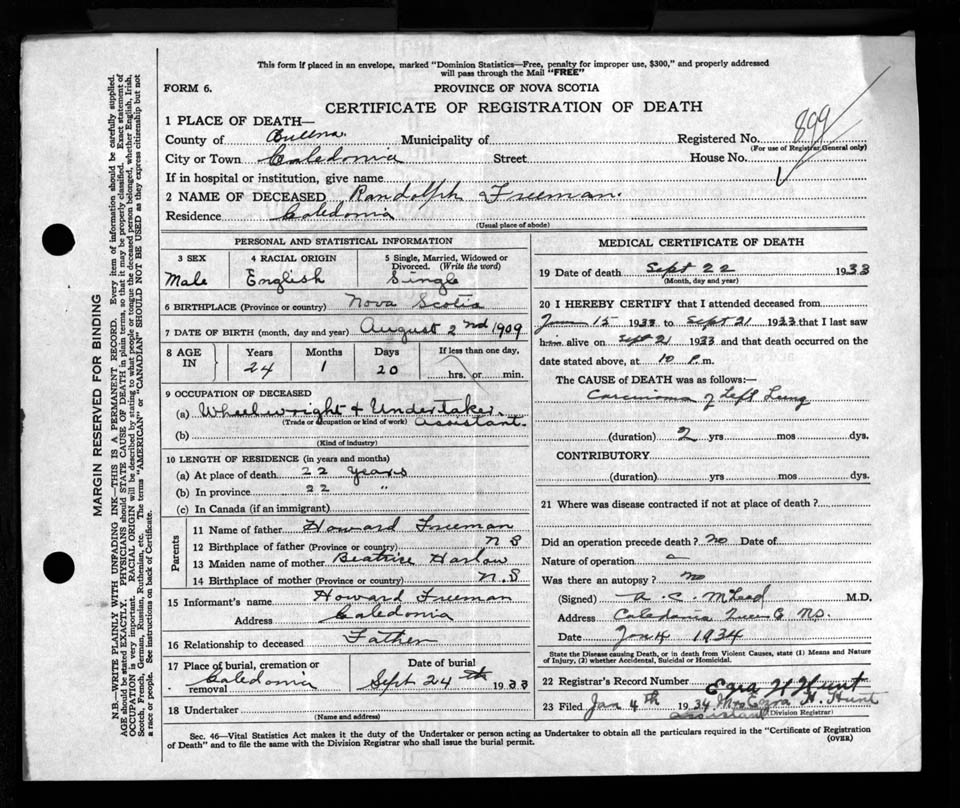 This form if placed in an envelope, marked "Dominion Statistics—Free, penalty for improper use, $300," and properly addressed
will pass through the Mail "FREE"
FORM 6.
PROVINCE OF NOVA SCOTIA
CERTIFICATE OF REGISTRATION OF DEATH
1 PLACE OF DEATH—
County of Municipality of Registered No. 899
(For use of Registrar General only)
City or Town Caledonia Street House No.
If in hospital or institution, give name
2 NAME OF DECEASED Randolph Freeman.
Residence Caledonia
(Usual place of abode)
PERSONAL AND STATISTICAL INFORMATION
3 SEX 4 RACIAL ORIGIN 5 Single, Married, Widowed or
Divorced. (Write the word)
Male English Single
6 BIRTHPLACE (Province or country) Nova Scotia
7 DATE OF BIRTH (month, day and year) August 2nd 1909
8 AGE IN Years Months Days If less than one day,
24 1 20 hrs. or min.
9 OCCUPATION OF DECEASED
(a) Wheelwright & Undertaker
(Trade or occupation or kind of work) assistant.
(b)
(Kind of industry)
10 LENGTH OF RESIDENCE (in years and months)
(a) At place of death 22 years
(b) In province 22 "
(c) In Canada (if an immigrant)
Parents
11 Name of father Howard Freeman
12 Birthplace of father (Province or country) N S
13 Maiden name of mother Beatrice Harlow
14 Birthplace of mother (Province or country) N.S
15 Informant's name Howard Freeman
Address Caledonia
16 Relationship to deceased Father
17 Place of burial, cremation or removal Date of burial
Caledonia Sept 24th 1933
18 Undertaker
(Name and address)
MEDICAL CERTIFICATE OF DEATH
19 Date of death Sept 22 1933
(Month, day and year)
20 I HEREBY CERTIFY that I attended deceased from
15 1933 to Sept 21 1933 that I last saw
him alive on Sept 21 1933 and that death occurred on the
date stated above, at 10 P.m.
The CAUSE OF DEATH was as follows:—
Carcinoma of Left Lung
(duration) 2 yrs. mos. dys.
CONTRIBUTORY
(duration) yrs. mos. dys.
21 Where was disease contracted if not at place of death?
Did an operation precede death? no Date of
Nature of operation
Was there an autopsy? no
(Signed) A. C. M.D.
Address Caledonia
Date Jan 4 1934
State the Disease causing Death, or in death from Violent Causes, state (1) Means and Nature
of Injury, (2) whether Accidental, Suicidal or Homicidal.
22 Registrar's Record Number Ezra H Hunt
23 Filed Jan 4th 1934 Mrs Ezra H. Hunt
assistant (Division Registrar)
Sec. 46—Vital Statistics Act makes it the duty of the Undertaker or person acting as Undertaker to obtain all the particulars required in the "Certificate of Registration
of Death" and to file the same with the Division Registrar who shall issue the burial permit.
(OVER)
MARGIN RESERVED FOR BINDING
N.B.—WRITE PLAINLY, WITH UNFADING INK—THIS IS A PERMANENT RECORD. Every item of information should be carefully supplied.
AGE should be stated EXACTLY. PHYSICIANS should STATE CAUSE OF DEATH in plain terms, so that it may be properly classified. Exact statement of
OCCUPATION is very important. RACIAL ORIGIN will be described by stating to what people or tongue the deceased person belonged, whether English, Irish,
Scotch, French, German, Russian, Ruthenian, etc. The terms "AMERICAN" or "CANADIAN" SHOULD NOT BE USED as they express citizenship but not
a race or people. See instructions on back of Certificate.